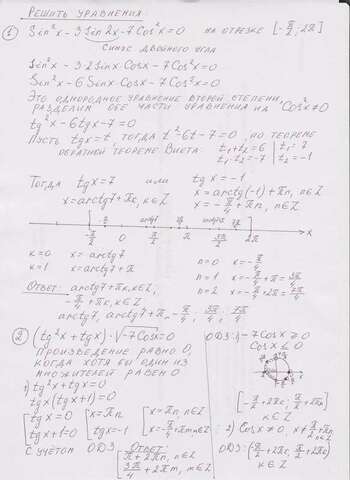 Решить уравнения:
① Sin²x - 3Sin2x - 7Cos²x = 0 на отрезке [-π/2; 2π]
Синус двойного угла
Sin²x - 3·2Sinx·Cosx - 7Cos²x = 0
Sin²x - 6Sinx·Cosx - 7Cos²x = 0
Это однородное уравнение второй степени,
разделим обе части уравнения на Cos²x ≠ 0
tg²x - 6tgx - 7 = 0
Пусть tgx = t, тогда t² - 6t - 7 = 0, по теореме
обратной теореме Виета: t₁ + t₂ = 6 | t₁ = 7
t₁·t₂ = -7 | t₂ = -1
Тогда tgx = 7 или tgx = -1
x = arctg7 + πk, k∈Z x = arctg(-1) + πn, n∈Z
x = -π/4 + πn, n∈Z
-π/2 0 π/2 π 3π/2 2π x
k = 0 x = arctg7 n = 0 x = -π/4
k = 1 x = arctg7 + π n = 1 x = -π/4 + π = 3π/4
Ответ: arctg7 + πk, k∈Z, n = 2 x = -π/4 + 2π = 7π/4
-π/4 + πk, k∈Z
arctg7, arctg7 + π, -π/4, 3π/4, 7π/4
② (tg²x + tgx)·√-7Cosx = 0
Произведение равно 0,
когда хотя бы один из
множителей равен 0
1) tg²x + tgx = 0
tgx(tgx + 1) = 0
tgx = 0 x = πn x = πn, n∈Z
tgx + 1 = 0 tgx = -1 x = -π/4 + πm, m∈Z
С учётом ОДЗ Ответ:
π + 2πn, n∈Z
3π/4 + 2πm, m∈Z
ОДЗ: 1) -7Cosx ≥ 0
Cosx ≤ 0
k∈Z
2) Cosx ≠ 0, x ≠ π/2 + πn
n∈Z
ОДЗ:
k∈Z